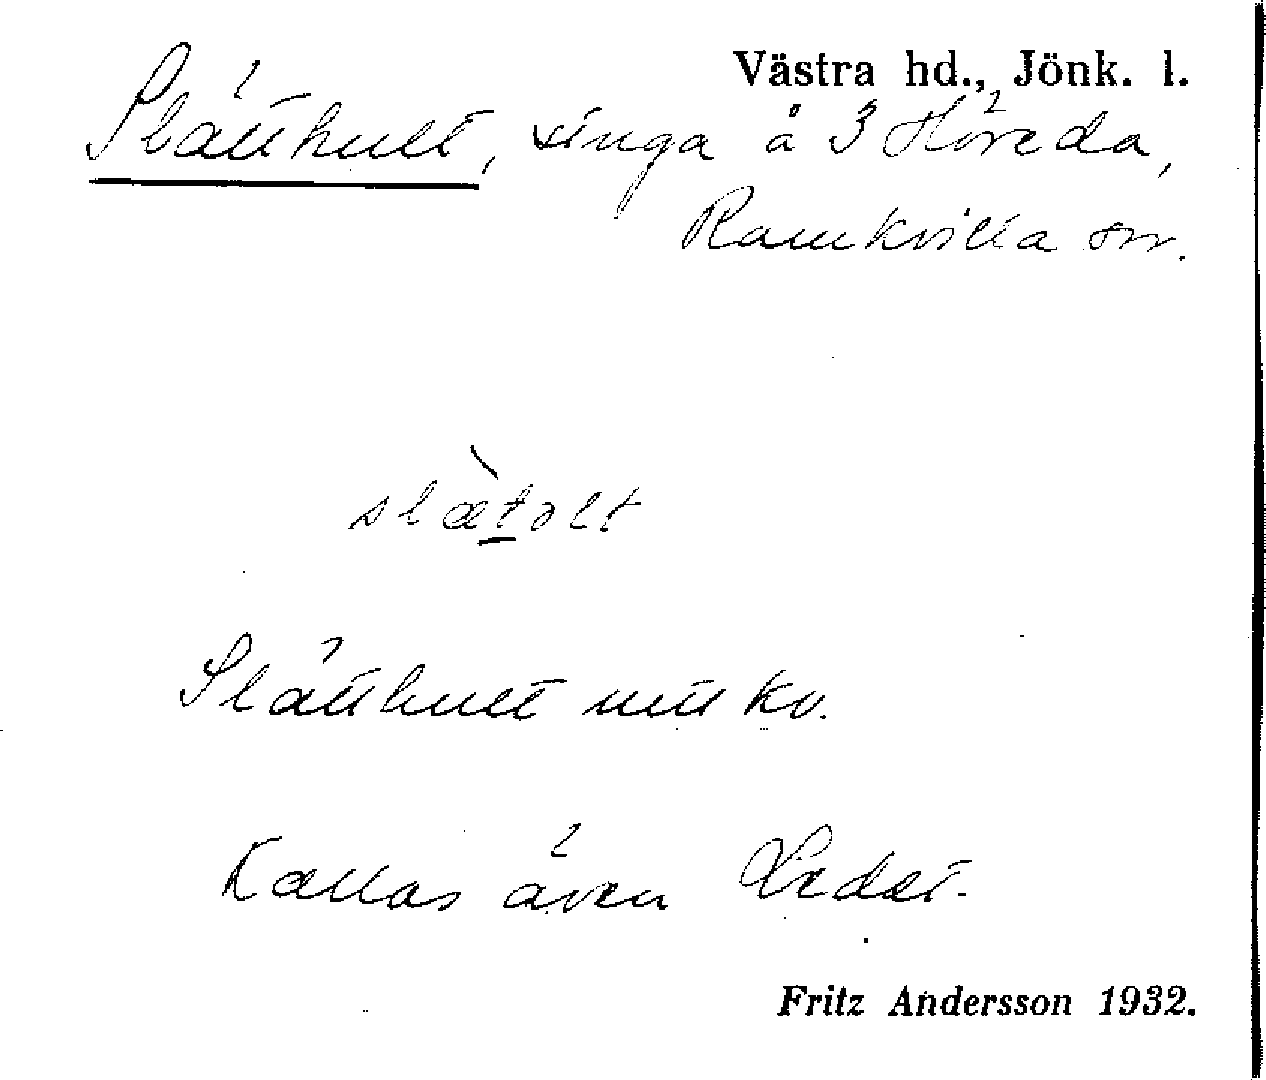 Västra hd., Jönk. l.
Slätthult, stuga å 3 Höreda,
Ramkvilla sn.
slætolt
Slätthult kv.
Kallas även
Fritz Andersson 1932.